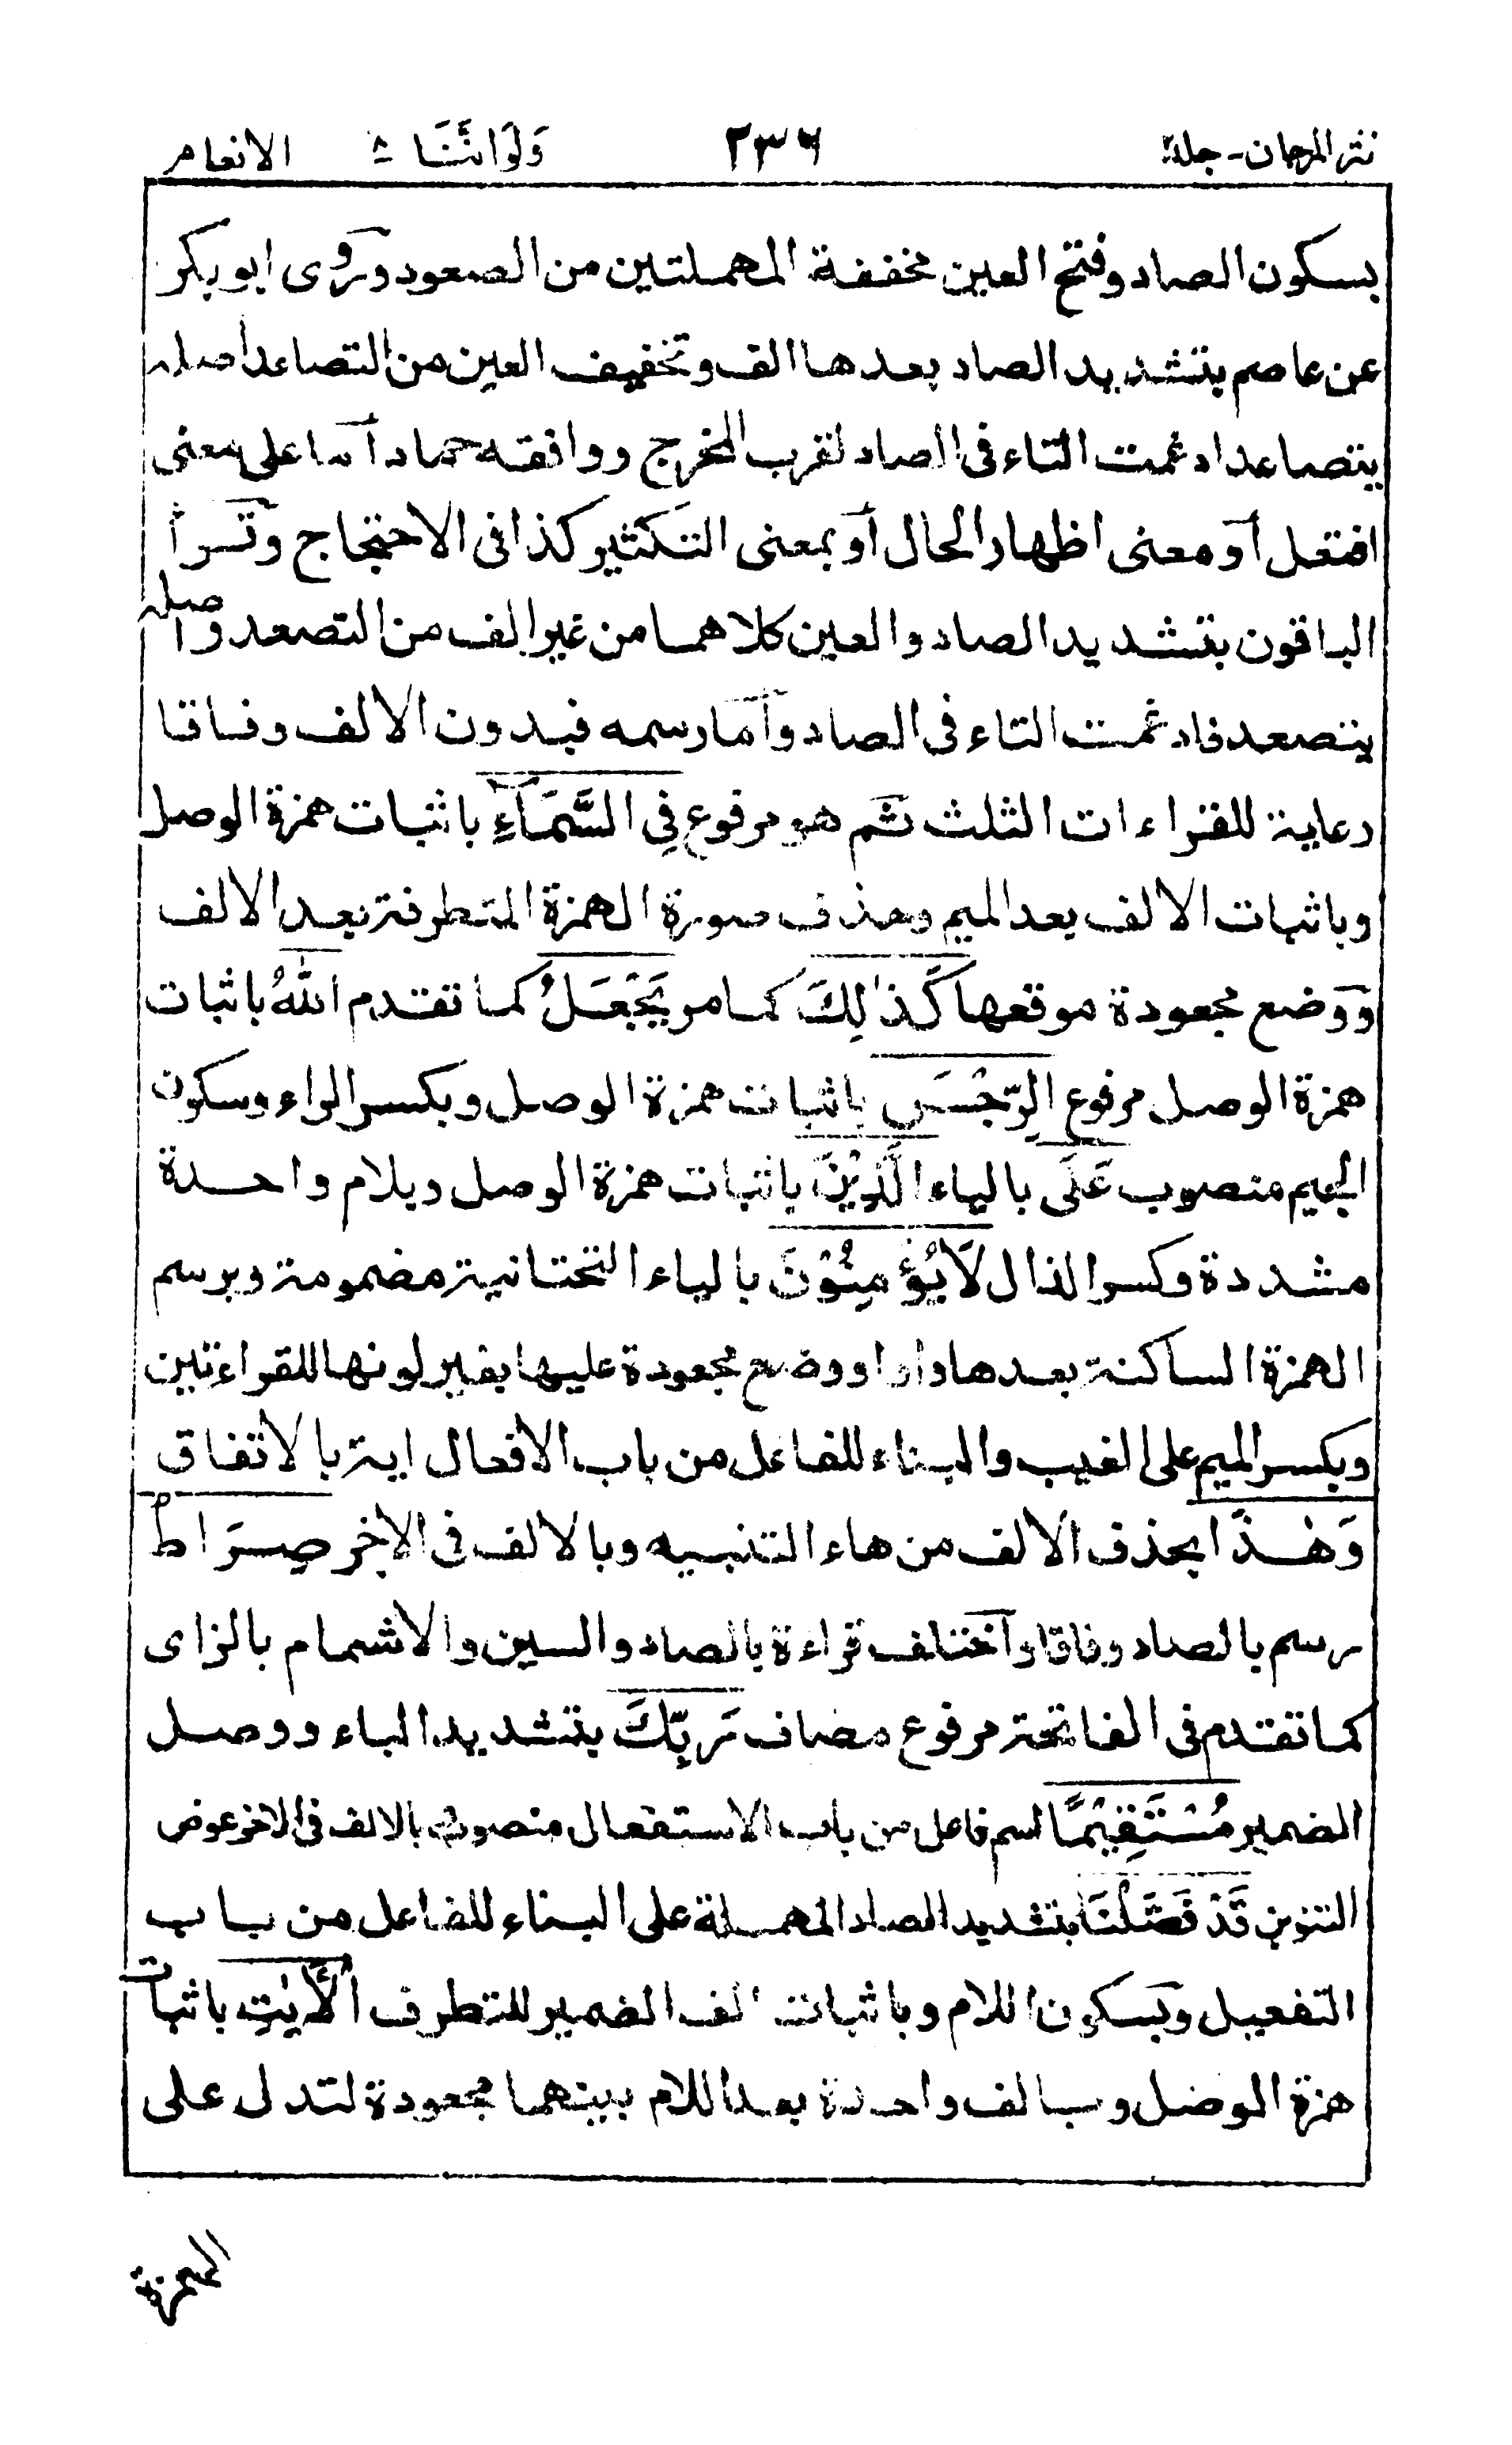 نثر المرجان - جلد ٢ ٢٣٦ وَلَوْ اَنَّنَا ٨ الانعام
بسكون الصاد وفتح العين مخففة المهملتين من الصعود وروى ابو بكر
عن عاصم بتشديد الصاد بعدها الف وتخفيف العين من التصاعد اصله
يتصاعد ادغمت التاء فى الصاد لقرب المخرج ووافقه حماد اما على معنى
افتعل او معنى اظهار الحال او بمعنى التكثير كذا فى الاحتجاج وقرأ
الباقون بتشديد الصاد والعين كلاهما من غير الف من التصعد واصله
يتصعد فادغمت التاء فى الصاد واما رسمه فبدون الالف وفاقا
رعاية للقراءات الثلث ثم هو مرفوع فِى السَّمَآءِ باثبات همزة الوصل
وباثبات الالف بعد الميم وحذف صورة الهمزة المتطرفة بعد الالف
ووضع مجعودة موقعها كَذٰلِكَ كما مر يَجْعَلُ كما تقدم اللهُ باثبات
همزة الوصل مرفوع الرِّجْسَ باثبات همزة الوصل وبكسر الراء وسكون
الجيم منصوب عَلَى بالياء الَّذِيْنَ باثبات همزة الوصل وبلام واحدة
مشددة وكسر الذال لَا يُؤْمِنُوْنَ بالياء التحتانية مضمومة وبرسم
الهمزة الساكنة بعدها واوا ووضع مجعودة عليها بغير لونها للقراءتين
وبكسر الميم على الغيب والبناء للفاعل من باب الافعال اية بالاتفاق
وَهٰذَا بحذف الالف من هاء التنبيه وبالالف فى الاخر صِرَاطُ
رسم بالصاد وفاقا واختلف قراءة بالصاد والسين والاشمام بالزاى
كما تقدم فى الفاتحة مرفوع مضاف رَبِّكَ بتشديد الباء ووصل
الضمير مُسْتَقِيْمًا اسم فاعل من باب الاستفعال منصوب بالالف فى الاخر عوض
التنوين قَدْ فَصَّلْنَا بتشديد الصاد المهملة على البناء للفاعل من باب
التفعيل وبسكون اللام وباثبات الف الضمير للتطرف الْاٰيٰتِ باثبات
همزة الوصل وبالف واحدة بعد اللام بينهما مجعودة لتدل على
الهمزة